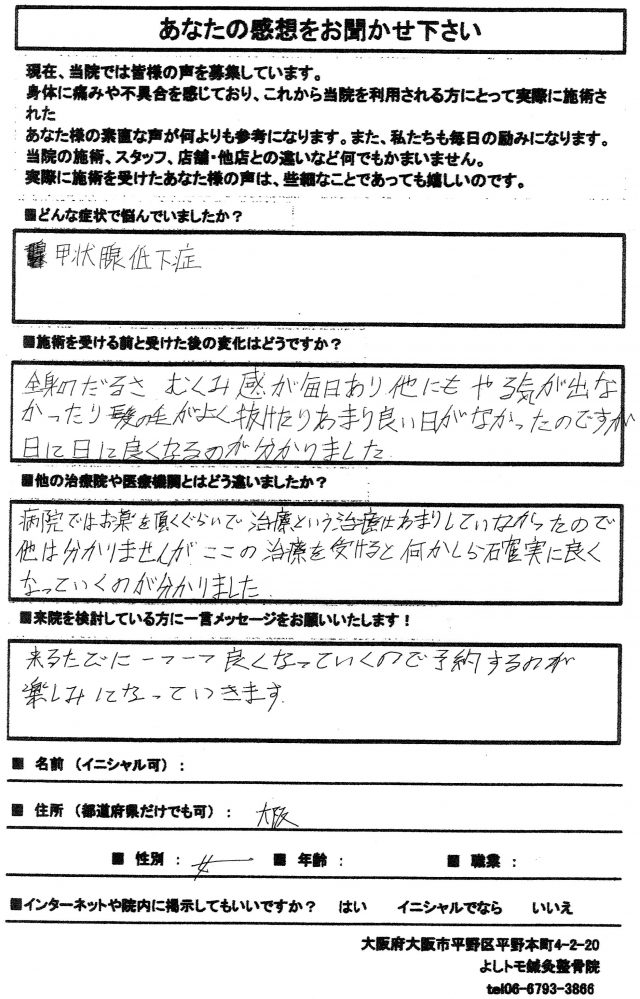 あなたの感想をお聞かせ下さい
現在、当院では皆様の声を募集しています。
身体に痛みや不具合を感じており、これから当院を利用される方にとって実際に施術さ
れた
あなた様の素直な声が何よりも参考になります。また、私たちも毎日の励みになります。
当院の施術、スタッフ、店舗・他店との違いなど何でもかまいません。
実際に施術を受けたあなた様の声は、些細なことであっても嬉しいのです。
■どんな症状で悩んでいましたか？
甲状腺低下症
■施術を受ける前と受けた後の変化はどうですか？
全身のだるさ むくみ感が毎日あり他にもやる気が出な
かったり髪の毛がよく抜けたりあまり良い日がなかったのですが
日に日に良くなるのが分かりました
■他の治療院や医療機関とはどう違いましたか？
病院ではお薬を頂くぐらいで治療という治療はあまりしていなかったので
他は分かりませんがここの治療を受けると何かしら確実に良く
なっていくのが分かりました
■来院を検討している方に一言メッセージをお願いいたします！
来るたびに一つ一つ良くなっていくので予約するのが
楽しみになっていきます
■ 名前（イニシャル可）：
■ 住所（都道府県だけでも可）： 大阪
■ 性別： 女 ■ 年齢： ■ 職業：
■インターネットや院内に掲示してもいいですか？ はい イニシャルでなら いいえ
大阪府大阪市平野区平野本町4-2-20
よしトモ鍼灸整骨院
tel06-6793-3866